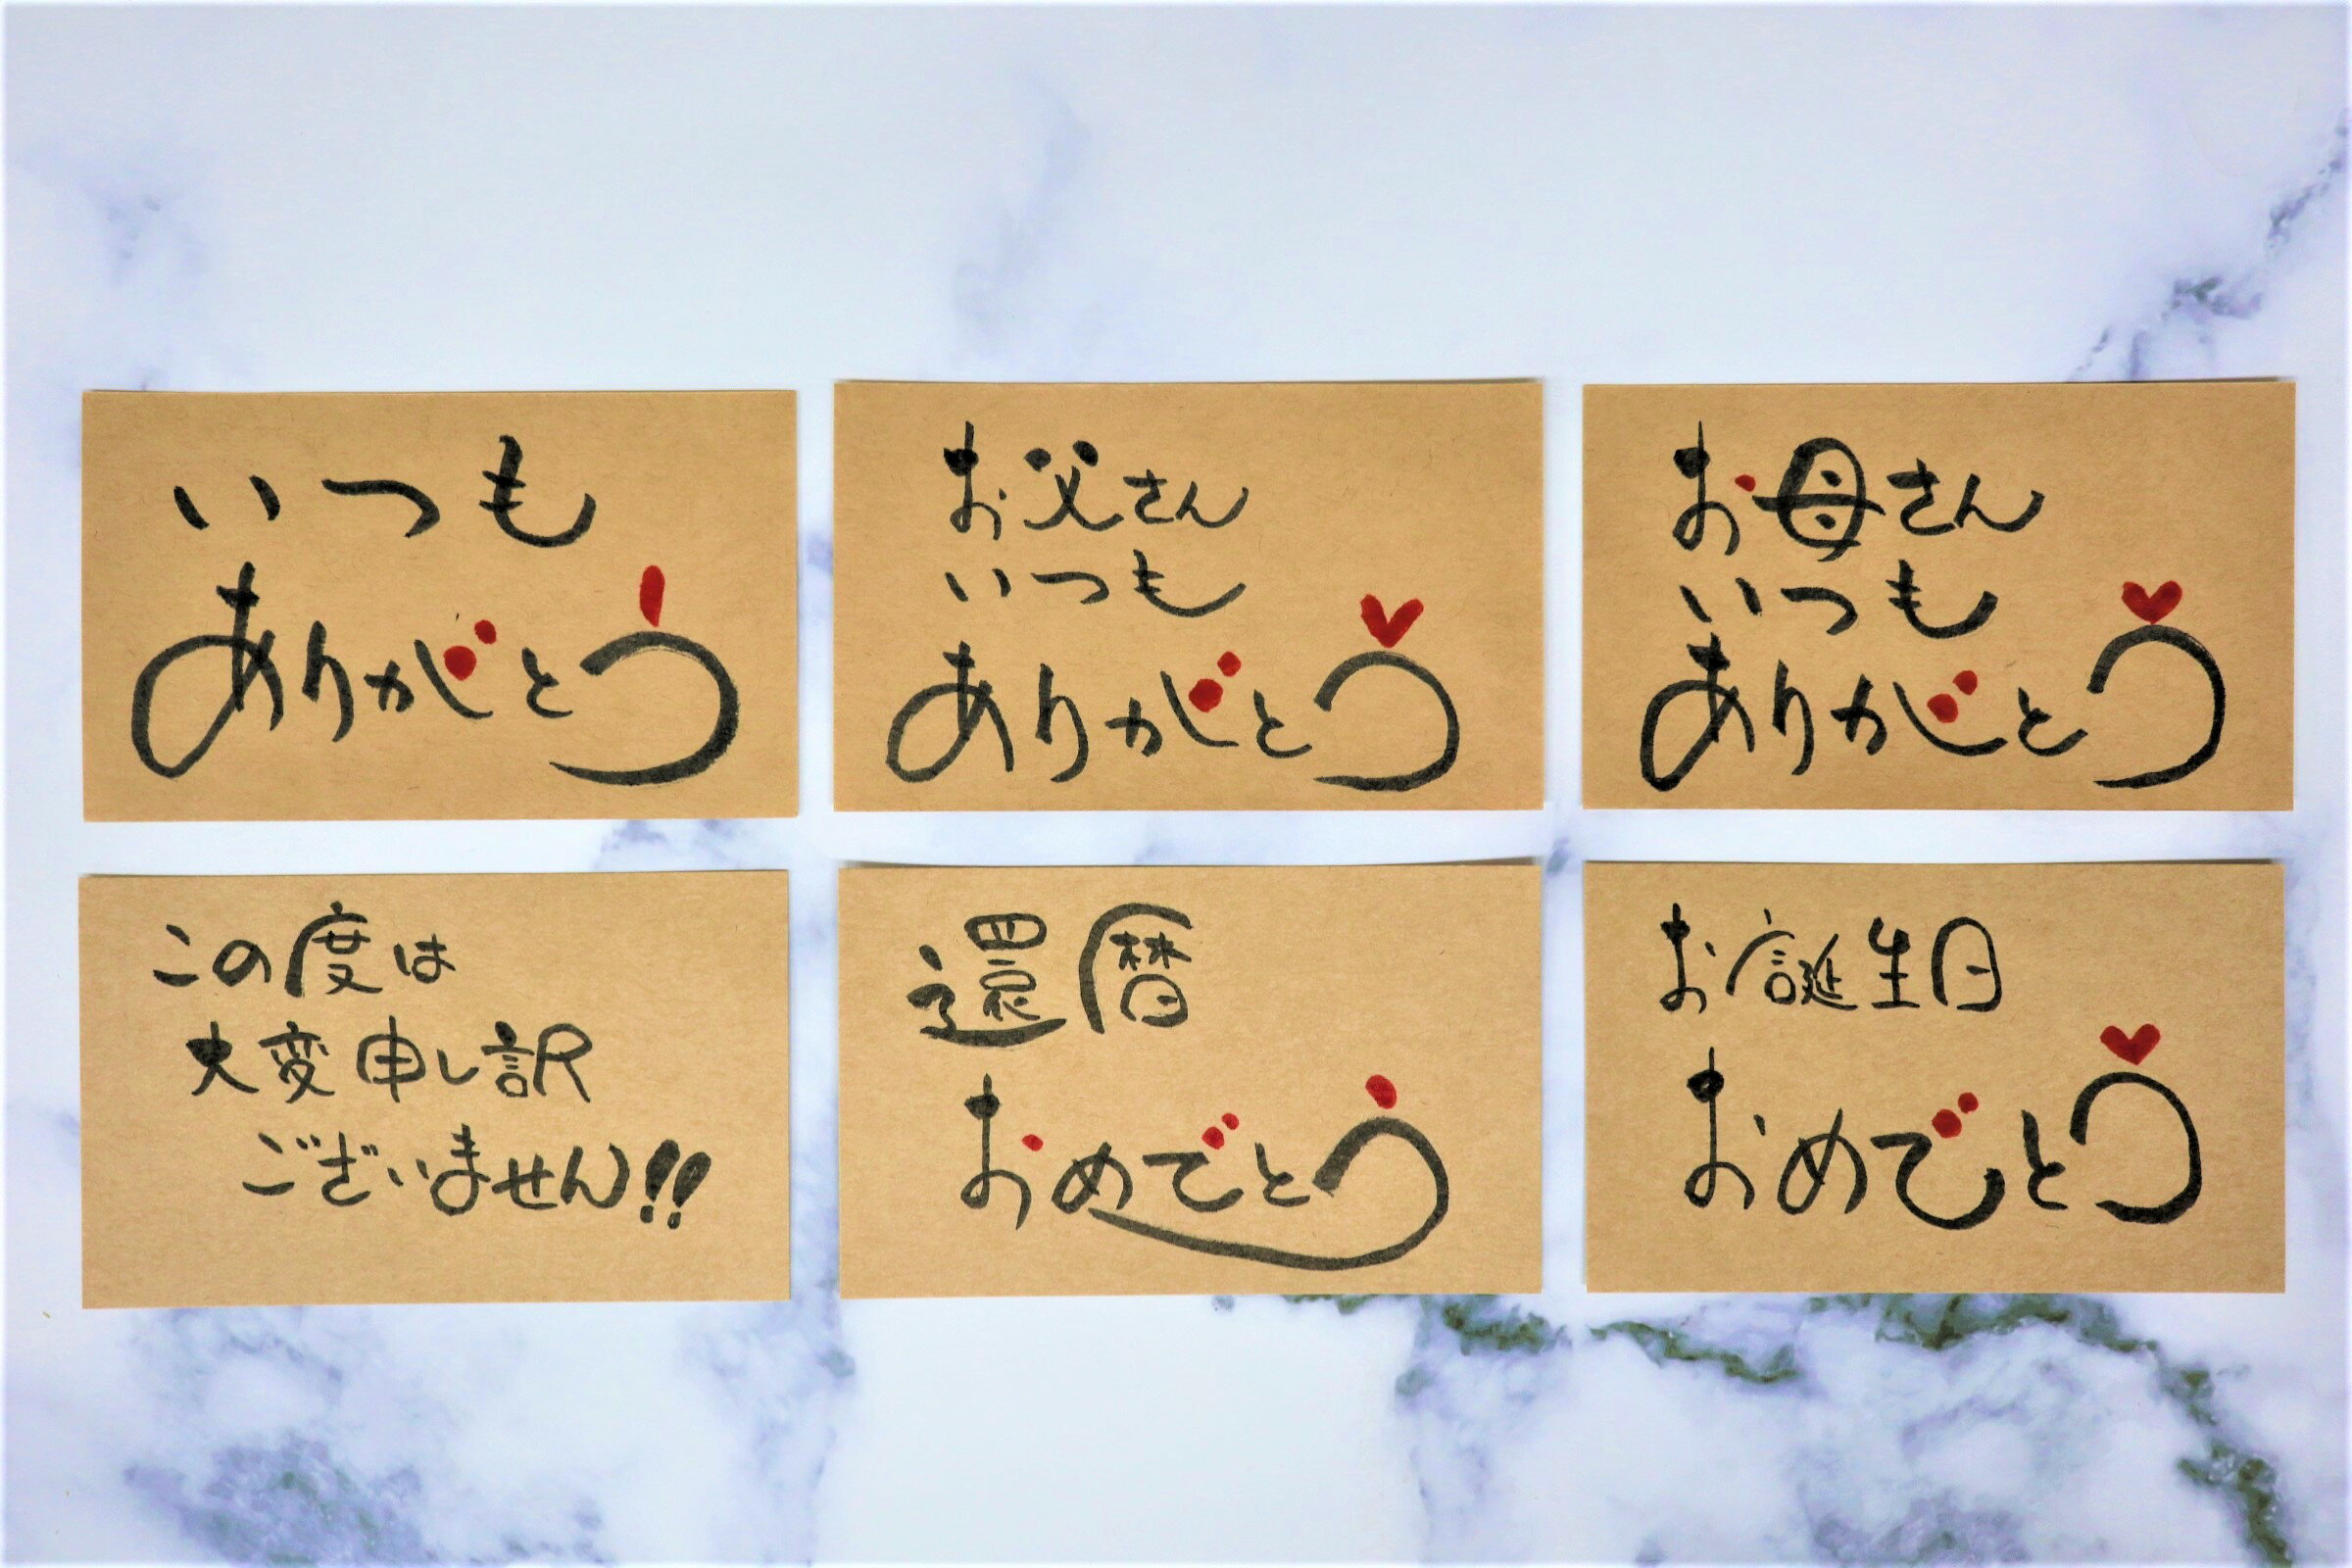 いつも
ありがとう
お父さん
いつも
ありがとう
お母さん
いつも
ありがとう
この度は
大変申し訳
ございません!!
還暦
おめでとう
お誕生日
おめでとう